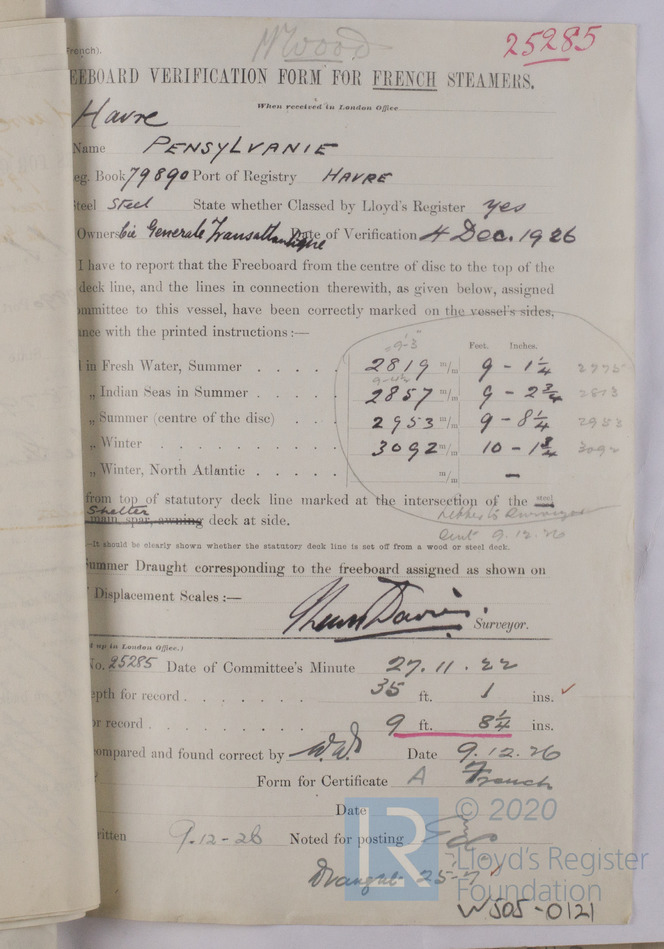 French).
25285
EEBOARD VERIFICATION FORM FOR FRENCH STEAMERS.
When received in London Office
Havre
Name PENSYLVANIE
eg. Book 79890 Port of Registry HAVRE
Steel Steel State whether Classed by Lloyd's Register yes
Owners Cie Generale Transatlantique Date of Verification 4 Dec. 1926
I have to report that the Freeboard from the centre of disc to the top of the
deck line, and the lines in connection therewith, as given below, assigned
ommittee to this vessel, have been correctly marked on the vessel's sides,
ance with the printed instructions:—
9-3
Feet. Inches.
in Fresh Water, Summer 2819 m/m 9 - 1¼ 2775
„ Indian Seas in Summer 2857 m/m 9 - 2¾ 2813
„ Summer (centre of the disc) 2953 m/m 9 - 8¼ 2953
„ Winter 3092 m/m 10 - 1¾ 3092
„ Winter, North Atlantic m/m —
from top of statutory deck line marked at the intersection of the steel
Shelter
main, spar, awning deck at side.
letter to Surveyor
sent 9.12.26
—It should be clearly shown whether the statutory deck line is set off from a wood or steel deck.
ummer Draught corresponding to the freeboard assigned as shown on
Displacement Scales:—
Surveyor.
d up in London Office.)
No. 25285 Date of Committee's Minute 27.11.22
epth for record 35 ft. 1 ins.
or record 9 ft. 8¼ ins.
compared and found correct by Date 9.12.26
Form for Certificate A French
Date
ritten 9.12-26 Noted for posting
Draught 25-7
© 2020
LR
Lloyd's Register
Foundation
W505-0121